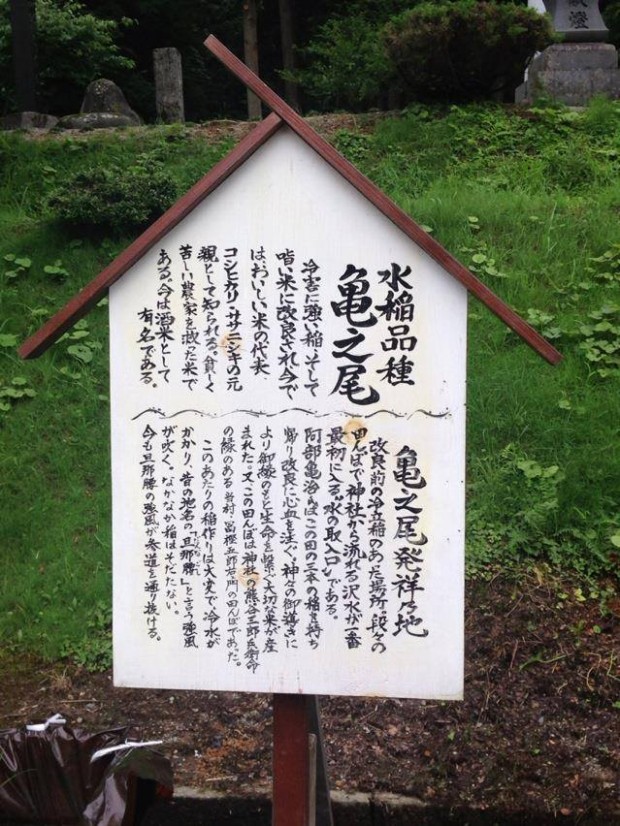 水稲品種
亀之尾
冷害に強い稲、そして
い米に改良され今で
は、おいしい米の代表、
コシヒカリ・ササニシキの元
親として知られる。貧しく
苦しい農家を救った米で
ある。今は酒米として
有名である。
亀之尾発祥乃地
改良前の冷立稲のあった場所、段々の
田んぼで神社から流れる沢水が一番
最初に入る"水の取入口"である。
阿部亀治氏はこの田の三本の稲を持ち
帰り改良に心血を注ぐ。神々の御導きに
より御縁のもと生命を繋ぐ大切な米が産
まれた。又この田んぼは神社の熊谷三郎兵衛命
の縁のある村、冨樫五郎右エ門の田んぼであった。
このあたりの稲作りは大変で、冷水が
かかり、昔の地名の「旦那腰」と言う強風
が吹く。なかなか稲はそだたない。
今も旦那腰の強風が参道を通り抜ける。